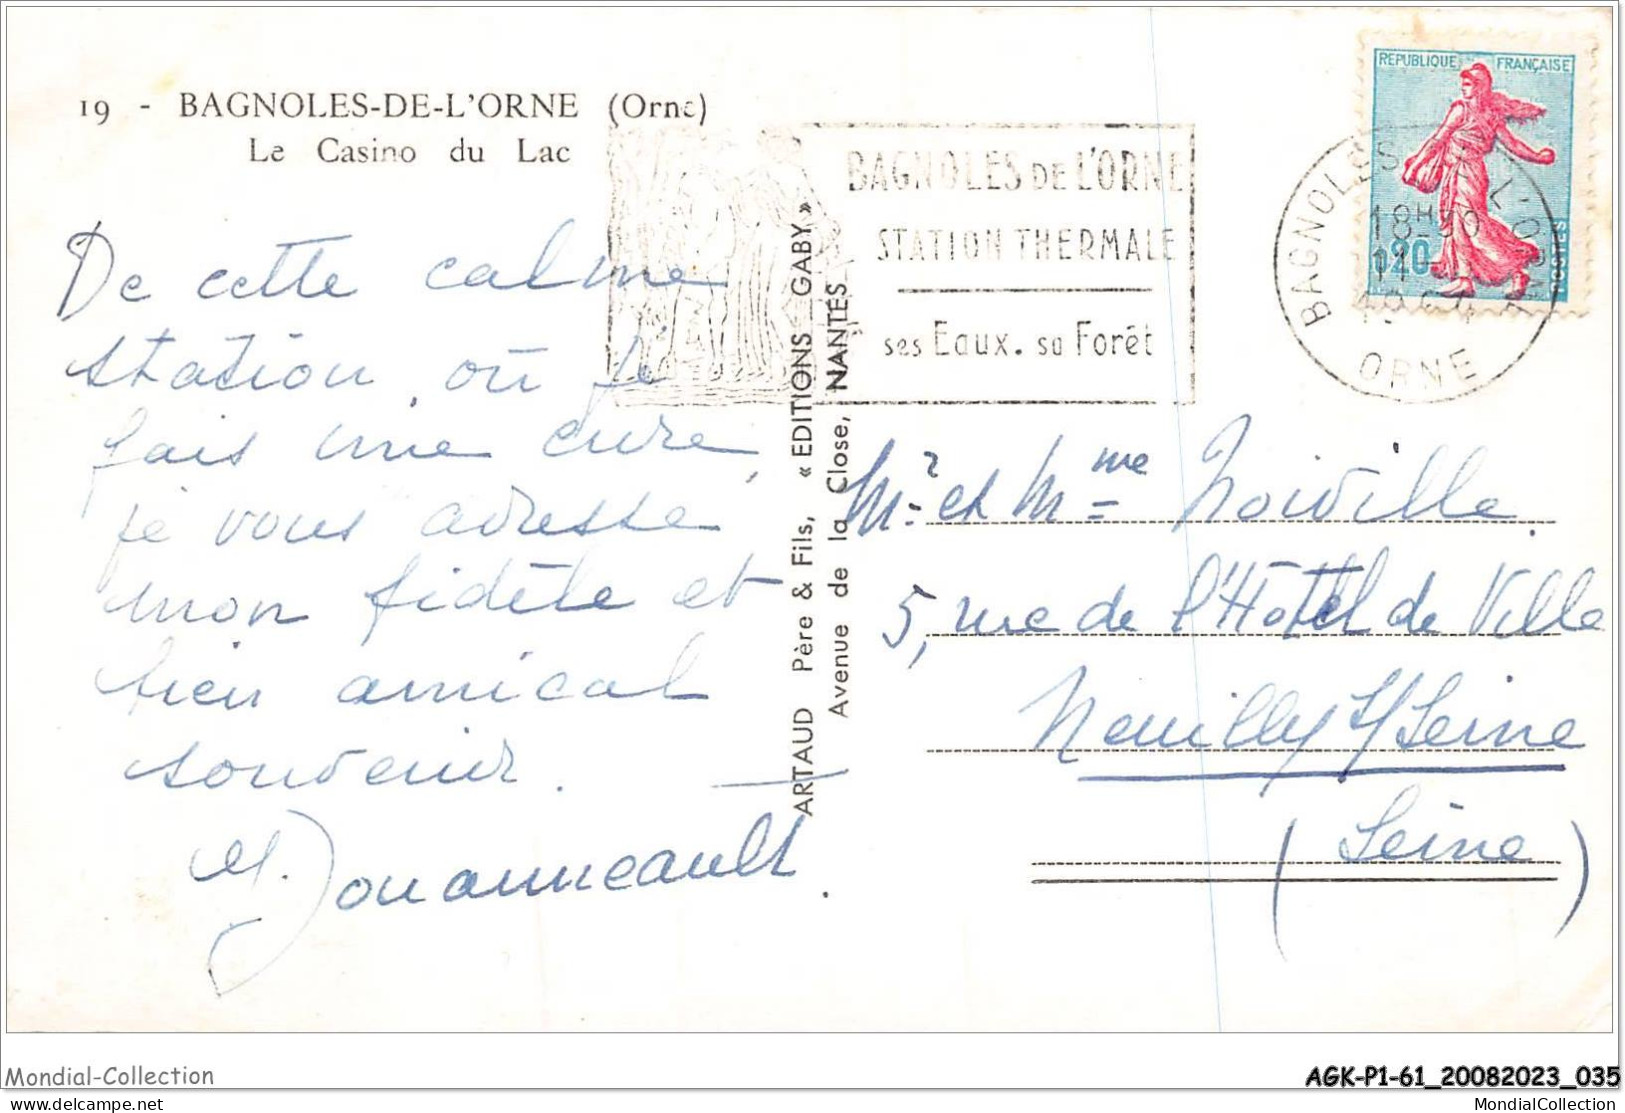 19 - BAGNOLES-DE-L'ORNE (Orne)
Le Casino du Lac
De cette calme
station, où je
fais une cure,
je vous adresse
mon fidèle et
bien amical
souvenir.
M. Jouanneault.
ARTAUD Père & Fils, « EDITIONS GABY »
Avenue de la Close, NANTES
BAGNOLES DE L'ORNE
STATION THERMALE
ses Eaux. sa Forêt
REPUBLIQUE FRANÇAISE
0,20
POSTES
BAGNOLES DE L'ORNE
18H30
ORNE
Mr et Mme Noiville.
5, rue de l'Hôtel de Ville
Neuilly s/Seine
(Seine)
Mondial-Collection
AGK-P1-61_20082023_035
www.delcampe.net
MondialCollection